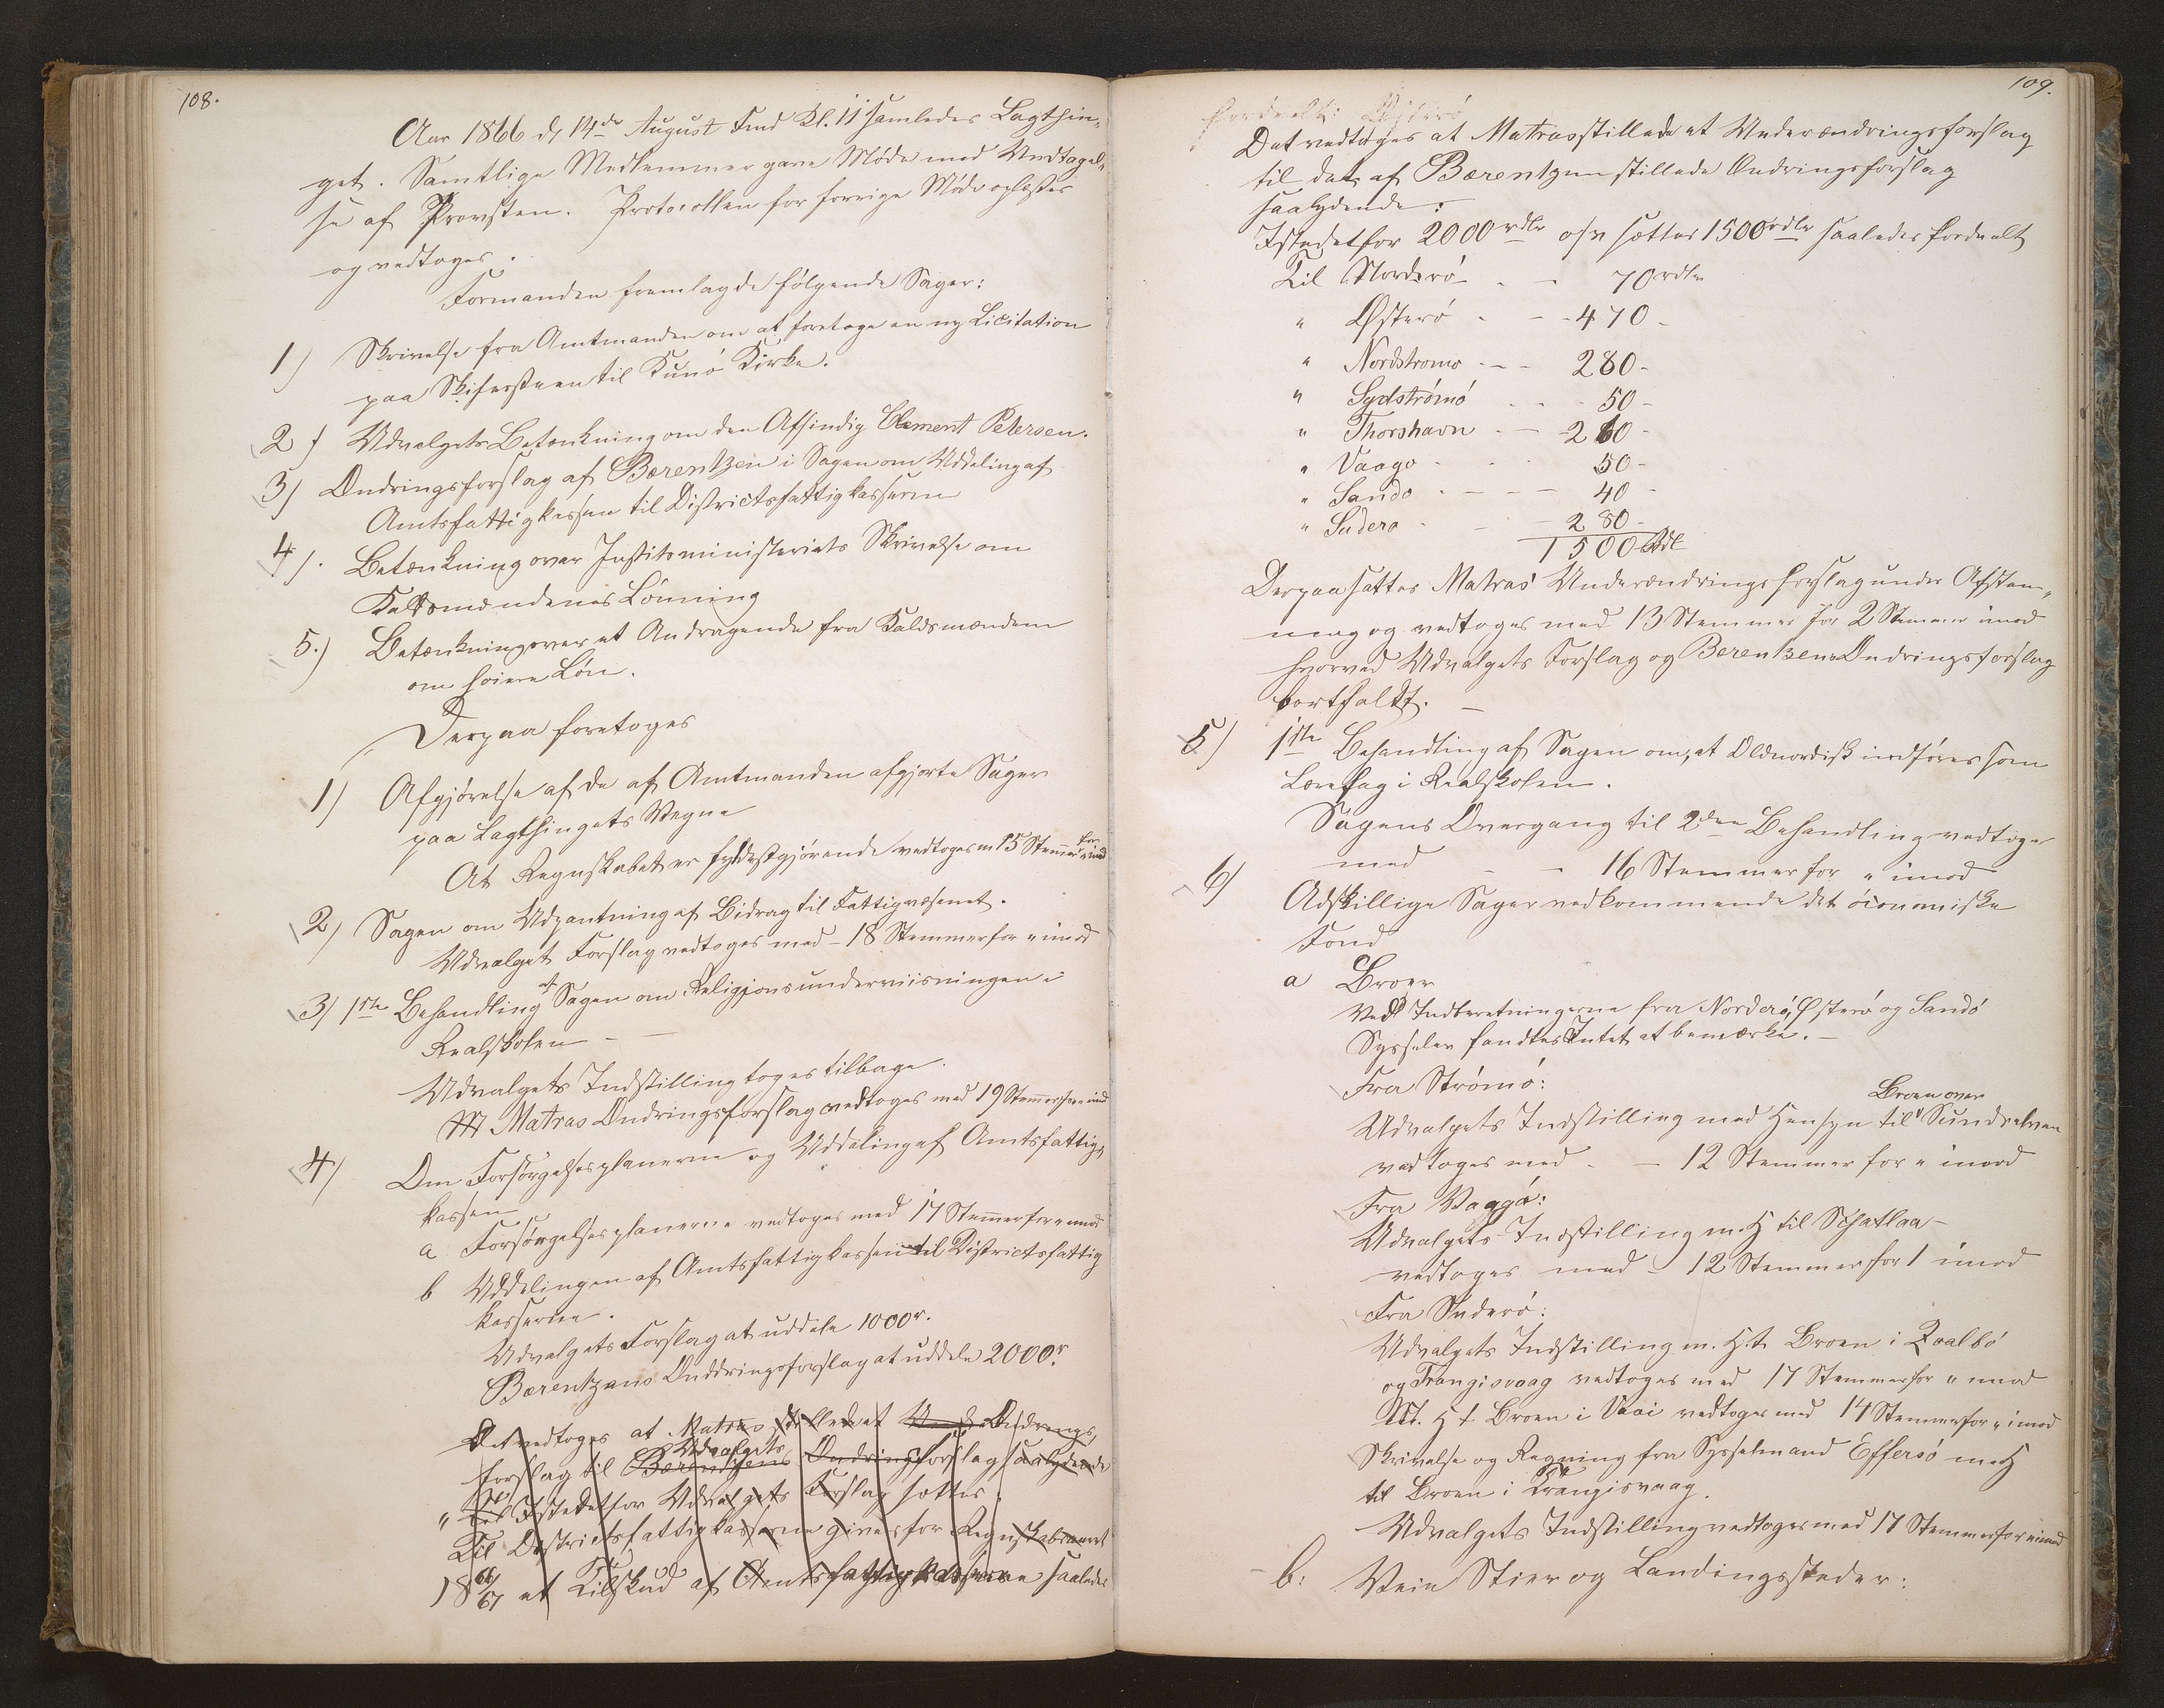 108.
Aar 1866 d. 14de August Fmd Kl. 11 samledes Lagthin-
get. Samtlige Medlemmer gave Møde med Undtagel-
se af Provsten. Protocollen for forrige Møde oplæstes
og vedtoges.
Formanden fremlagde følgende Sager:
1) Skrivelse fra Amtmanden om at foretage en ny Licitation
paa Skifersteen til Kunø Kirke.
2) Udvalgets Betænkning om den Afsindig Clement Petersen.
3) Ændringsforslag af Bærentzen i Sagen om Uddeling af
Amtsfattigkassen til Districtsfattigkasserne
4) Betænkning over Justitsministeriets Skrivelse om
Kaldsmændenes Lønning
5.) Betænkning over et Andragende fra Kaldsmændene
om høiere Løn.
Derpaa foretoges
1) Afgjørelse af de af Amtmanden afgjorte Sager
paa Lagthingets Vegne
At Regnskabet er fyldestgjørende vedtoges m 15 Stemmer for " imod
2) Sagen om Udpantning af Bidrag til Fattigvæsenet.
Udvalget Forslag vedtoges med - 18 Stemmer for " imod
3) 1ste Behandling af Sagen om Religionsunderviisningen i
Realskolen -
Udvalgets Indstilling toges tilbage.
M Matras Ændringsforslag vedtoges med 19 Stemmer for " imod
4) Om Forsørgelsesplanerne og Uddeling af Amtsfattig-
kassen
a Forsørgelsesplanerne vedtoges med 17 Stemmer for " imod
b Uddelingen af Amtsfattigkassen til Districtsfattig
kasserne.
Udvalgets Forslag at uddele 1000r.
Bærentzens Ænddringsforslag at uddele 2000r.
Det vedtoges at Matras stillede et Und. Ændrings,
forslag til Bærentzens Udvalgets Ændringsforslag saalydende
" Istedetfor Udvalgets Forslag sættes:
Til Districtsfattigkasserne gives for Regnskabsaaret
1866/67 et Tilskud af Amtsfattigkasserne saaledes
109.
fordeelt: Østerø
Det vedtoges at Matras stillede et Underændringsforslag
til det af Bærentzen stillede Ændringsforslag
saalydende:
Istedetfor 2000 rdlr osv sættes 1500 rdlr saaledes fordeelt
Til Norderø - - 70 rdlr
" Østerø - - 470 -
" Nordstrømø - - - 280 -
" Sydstrømø - - 50 -
" Thorshavn - - 260 -
" Vaagø - - 50 -
" Sandø - - - 40 -
" Suderø - - 280 -
1500 Rdl
Derpaa sattes Matras' Underændringsforslag under Afstem-
ning og vedtoges med 13 Stemmer for 2 Stemmer imod
hvorved Udvalgets Forslag og Bærentzens Ændringsforslag
bortfaldt. -
5) 1ste Behandling af Sagen om, at Oldnordisk indføres som
Lærefag i Realskolen.
Sagens Overgang til 2den Behandling vedtoges
med - - 16 Stemmer for " imod
6) Adskillige Sager vedkommende det øconomiske
Fond
a Broer
Ved Indberetningerne fra Norderø, Østerø og Sandø
Sysseler fandtes Intet at bemærke. -
Fra Strømø:
Udvalgets Indstilling med Hensyn til Broen over Sundselven
vedtoges med - - 12 Stemmer for " imod
Fra Vaagø:
Udvalgets Indstilling m. H til Skatlaa -
vedtoges med - 12 Stemmer for 1 imod
Fra Suderø:
Udvalgets Indstilling m. H. t. Broen i Qvalbø
og Trangisvaag vedtoges med 17 Stemmer for " imod
M. H t Broen i Vaai vedtoges med 14 Stemmer for " imod
Skrivelse og Regning fra Sysselmand Effersø m H
til Broen i Trangisvaag.
Udvalgets Indstilling vedtoges med 17 Stemmer for " imod
b: Veie Stier og Landingssteder: